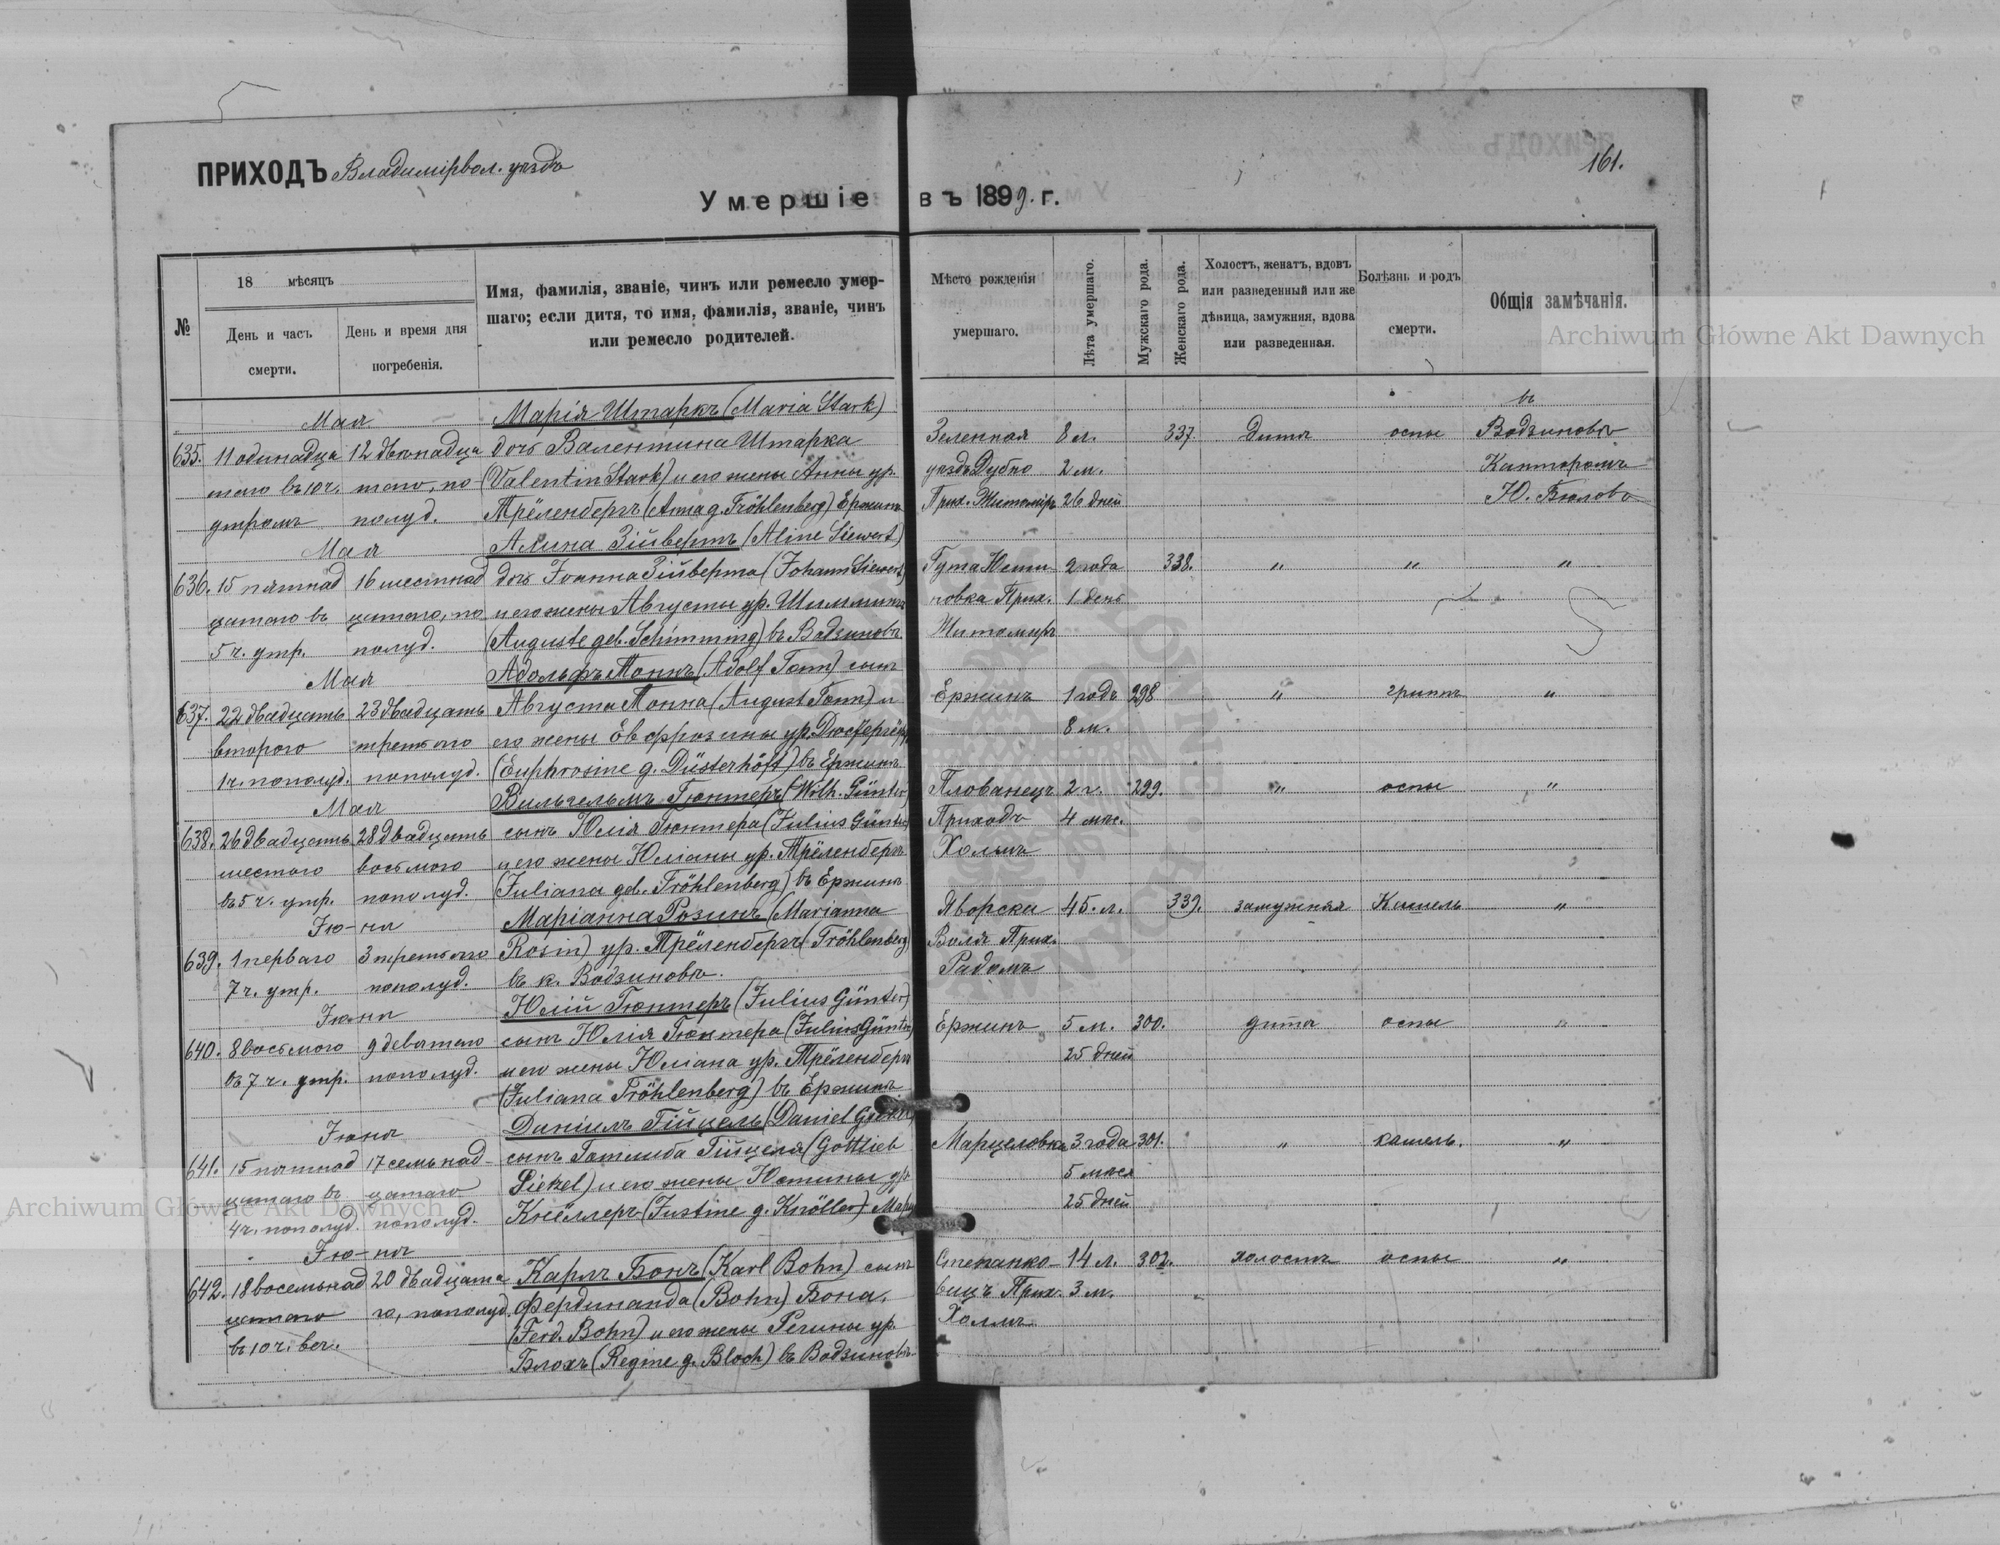 161.
ПРИХОДЪ Владимірвол. уѣздъ
Умершіе въ 1899. г.
№
18 мѣсяцъ
День и часъ смерти.
День и время дня погребенія.
Имя, фамилія, званіе, чинъ или ремесло умер-
шаго; если дитя, то имя, фамилія, званіе, чинъ
или ремесло родителей.
Мѣсто рожденія умершаго.
Лѣта умершаго.
Мужскаго рода.
Женскаго рода.
Холостъ, женатъ, вдовъ
или разведенный или же
дѣвица, замужняя, вдова
или разведенная.
Болѣзнь и родъ смерти.
Общія замѣчанія.
Archiwum Główne Akt Dawnych
Мая Марія Штаркъ (Maria Stark) въ
635. 11 одинадца 12 двѣнадца дочь Валентина Штарка Зеленная 8 л. 337. дитя оспы Водзиновѣ
таго въ 10 ч. таго, по (Valentin Stark) и его жены Анны ур. уѣздъ Дубно 2 м. Канторомъ
утромъ полуд. Трёленбергъ (Anna g. Fröhlenberg) Ержинъ Прих. Житоміръ 26 дней Ю. Бюлов
Мая Алина Зійвертъ (Aline Siewert)
636. 15 пятнад 16 шестнад дочь Іоанна Зійверта (Johann Siewert) Гута Юзти- 2 года 338. " " "
цатаго въ цатаго, по и его жены Августы ур. Шиммингъ новка Прих. 1 день
5 ч. утр. полуд. (Auguste geb. Schimming) въ Водзиновѣ Житомиръ
Мая Адольфъ Тоннъ (Adolf Tonn) сынъ
637. 22 двадцать 23 двадцать Августа Тонна (August Tonn) и Ержинъ 1 годъ 298 " гриппъ "
второго третьяго его жены Евфрозины ур. 8 м.
1 ч. пополуд. пополуд. (Euphrosine g. Düsterhöft) въ Ержинѣ
Мая Вильгельмъ Гюнтеръ (Wilh. Günter) Пловпнецъ 2 г. 299. " оспы "
638. 26 двадцать 28 двадцать сынъ Юлія Гюнтера (Julius Günter) Приходъ 4 мѣс.
шестого восьмого и его жены Юліаны ур. Трёленбергъ Холмъ
въ 5 ч. утр. пополуд. (Juliana geb. Fröhlenberg) въ Ержинѣ
Іюня Маріанна Розинъ (Marianna Яворска 45. л. 339. замужняя Кашель "
639. 1 перваго 3 третьяго Rosin) ур. Трёленбергъ (Fröhlenberg) Воля Прих.
7 ч. утр. пополуд. въ к. Водзиновѣ. Радомъ
Іюня Юлій Гюнтеръ (Julius Günter)
640. 8 восьмого 9 девятаго сынъ Юлія Гюнтера (Julius Günter) Ержинъ 5 м. 300. дитя оспы "
въ 7 ч. утр. пополуд. и его жены Юліана ур. Трёленбергъ 25 дней
(Juliana Fröhlenberg) въ Ержинѣ
Іюня Даніилъ Гійцель (Daniel
641. 15 пятнад 17 семьнад- сынъ Готлиба Гійцеля (Gottlieb Марцеловка 3 года 301. " кашель. "
цатаго въ цатаго и его жены Юстины ур. 5 мѣся
4 ч. пополуд. пополуд. Кнёллеръ (Justine g. Knöller) 25 дней
Archiwum Główne Akt Dawnych
Іюня
642. 18 восемьнад 20 двадцата Карлъ Бонъ (Karl Bohn) сынъ Степанко- 14 л. 302. холостъ оспы "
цатаго го, пополуд. Фердинанда (Bohn) Бона, вицъ Прих. 3 м.
въ 10 ч. веч. (Ferd. Bohn) и его жены Регины ур. Холмъ
Блохъ (Regine g. Bloch) въ Водзиновѣ